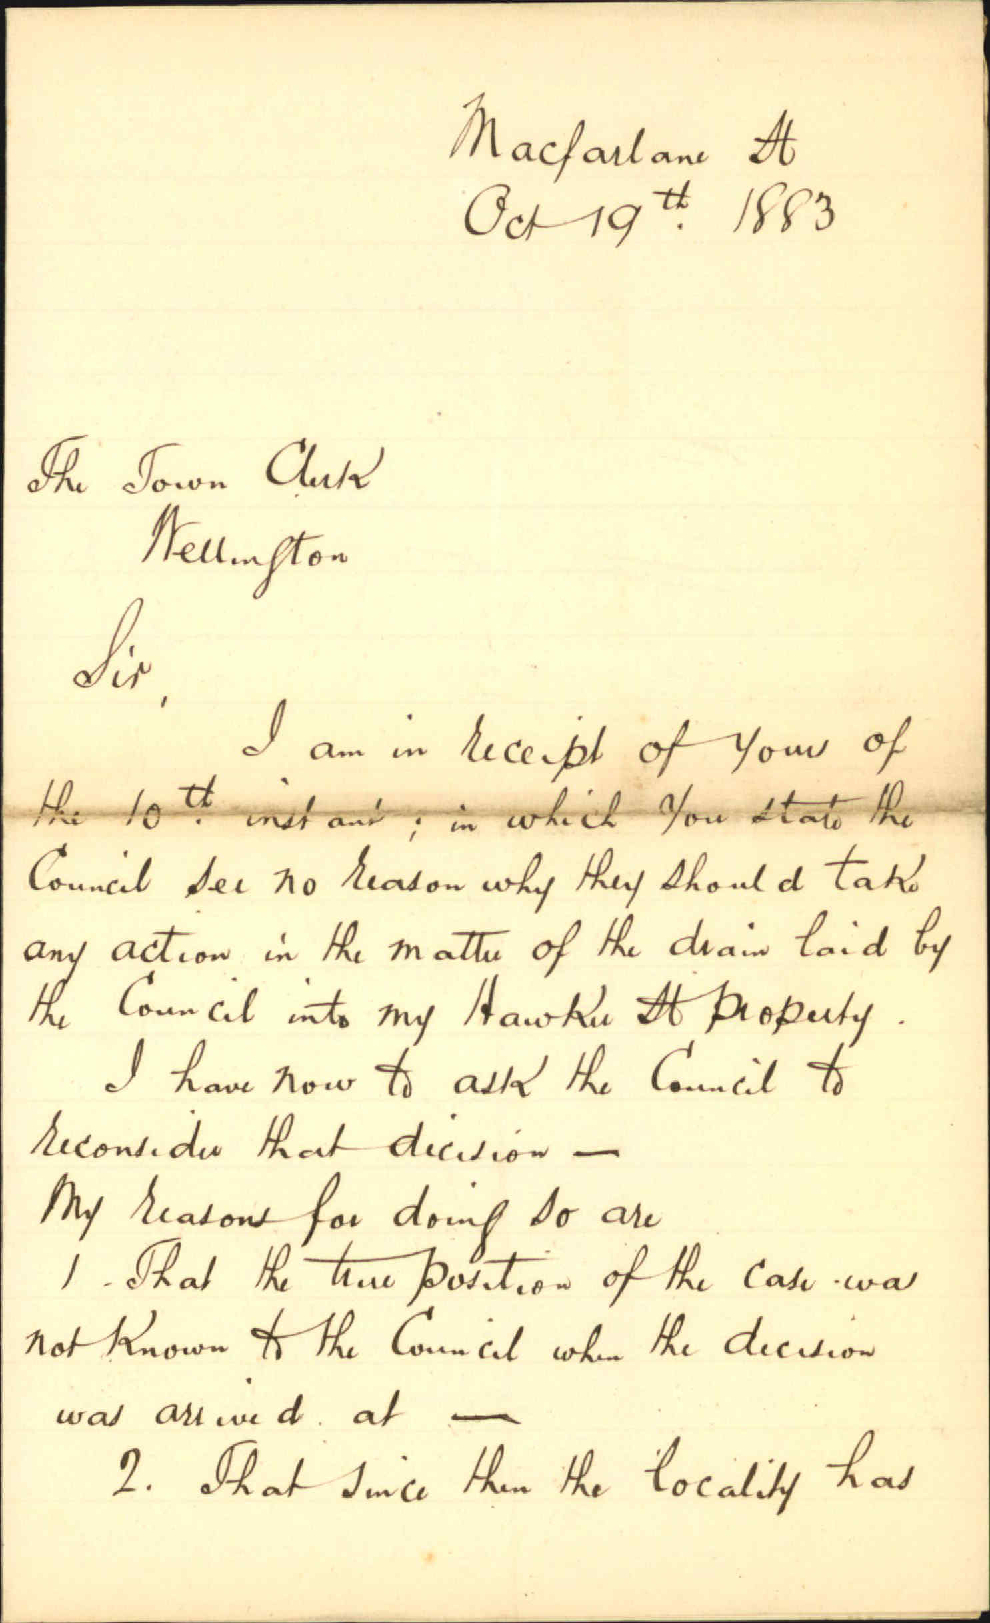 Macfarlane St
Oct 19th. 1883
The Town Clerk
Wellington
Sir,
I am in receipt of yours of
the 10th. instant; in which you state the
Council see no reason why they should take
any action in the matter of the drain laid by
the Council into my Hawker St property.
I have now to ask the Council to
reconsider that decision —
My reasons for doing so are
1. That the true position of the case was
not known to the Council when the decision
was arrived at —
2. That since then the locality has